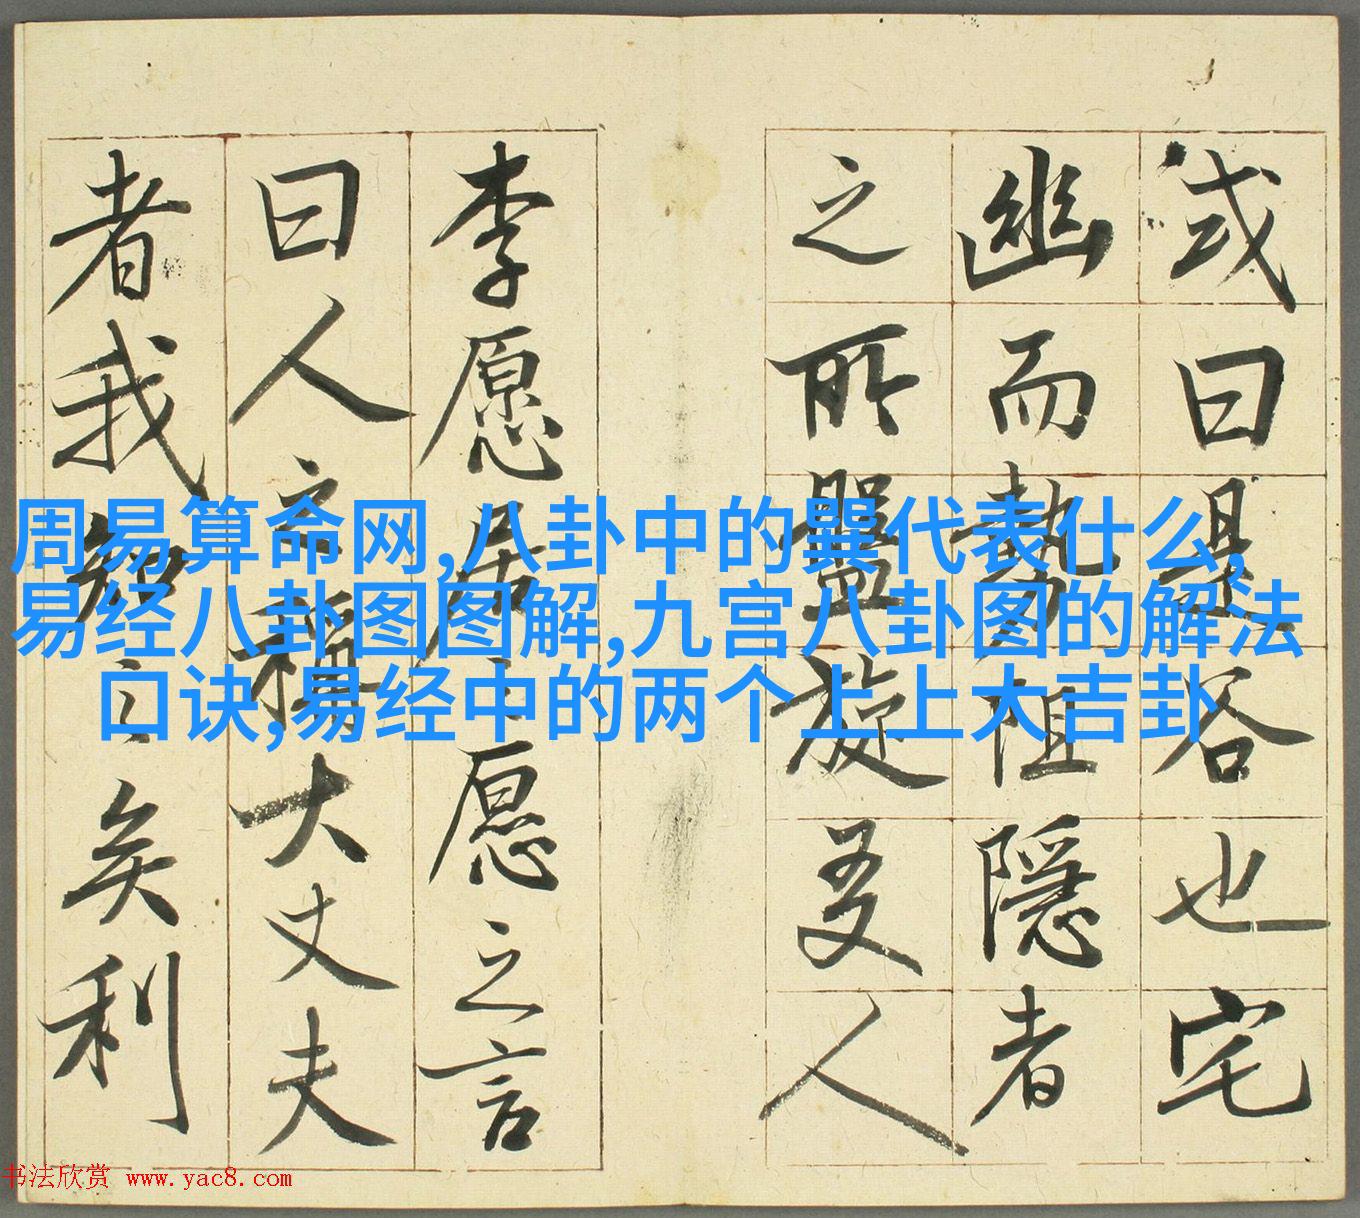 或曰是谷也宅
幽而勢阻隱者
之所盤旋友人
李愿居之愿之言
曰人之稱大丈夫
者我知之矣利
周易算命网,八卦中的巽代表什么,
易经八卦图图解,九宫八卦图的解法
口诀,易经中的两个上上大吉卦
书法欣赏 www.yac8.com